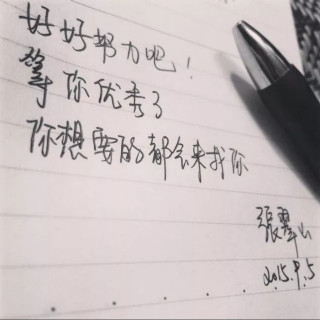 好好努力吧！
等你优秀了
你想要的都会来找你
張翠山
2015.9.5